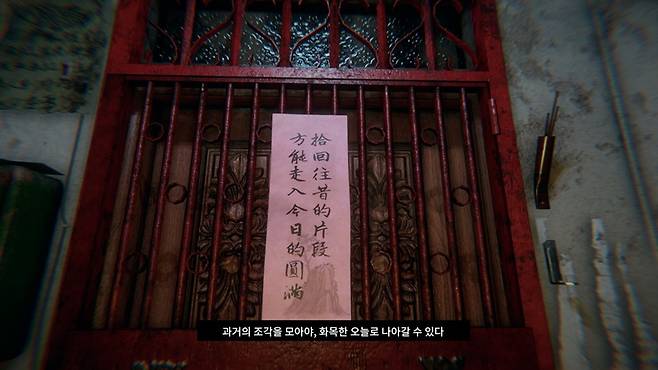 拾回往昔的片段
方能走入今日的圓滿
과거의 조각을 모아야, 화목한 오늘로 나아갈 수 있다